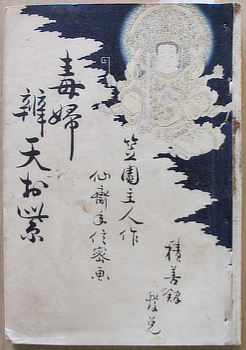 毒婦
辨天お紫
笠園主人作
仙齋年信密画
積善館
發兌